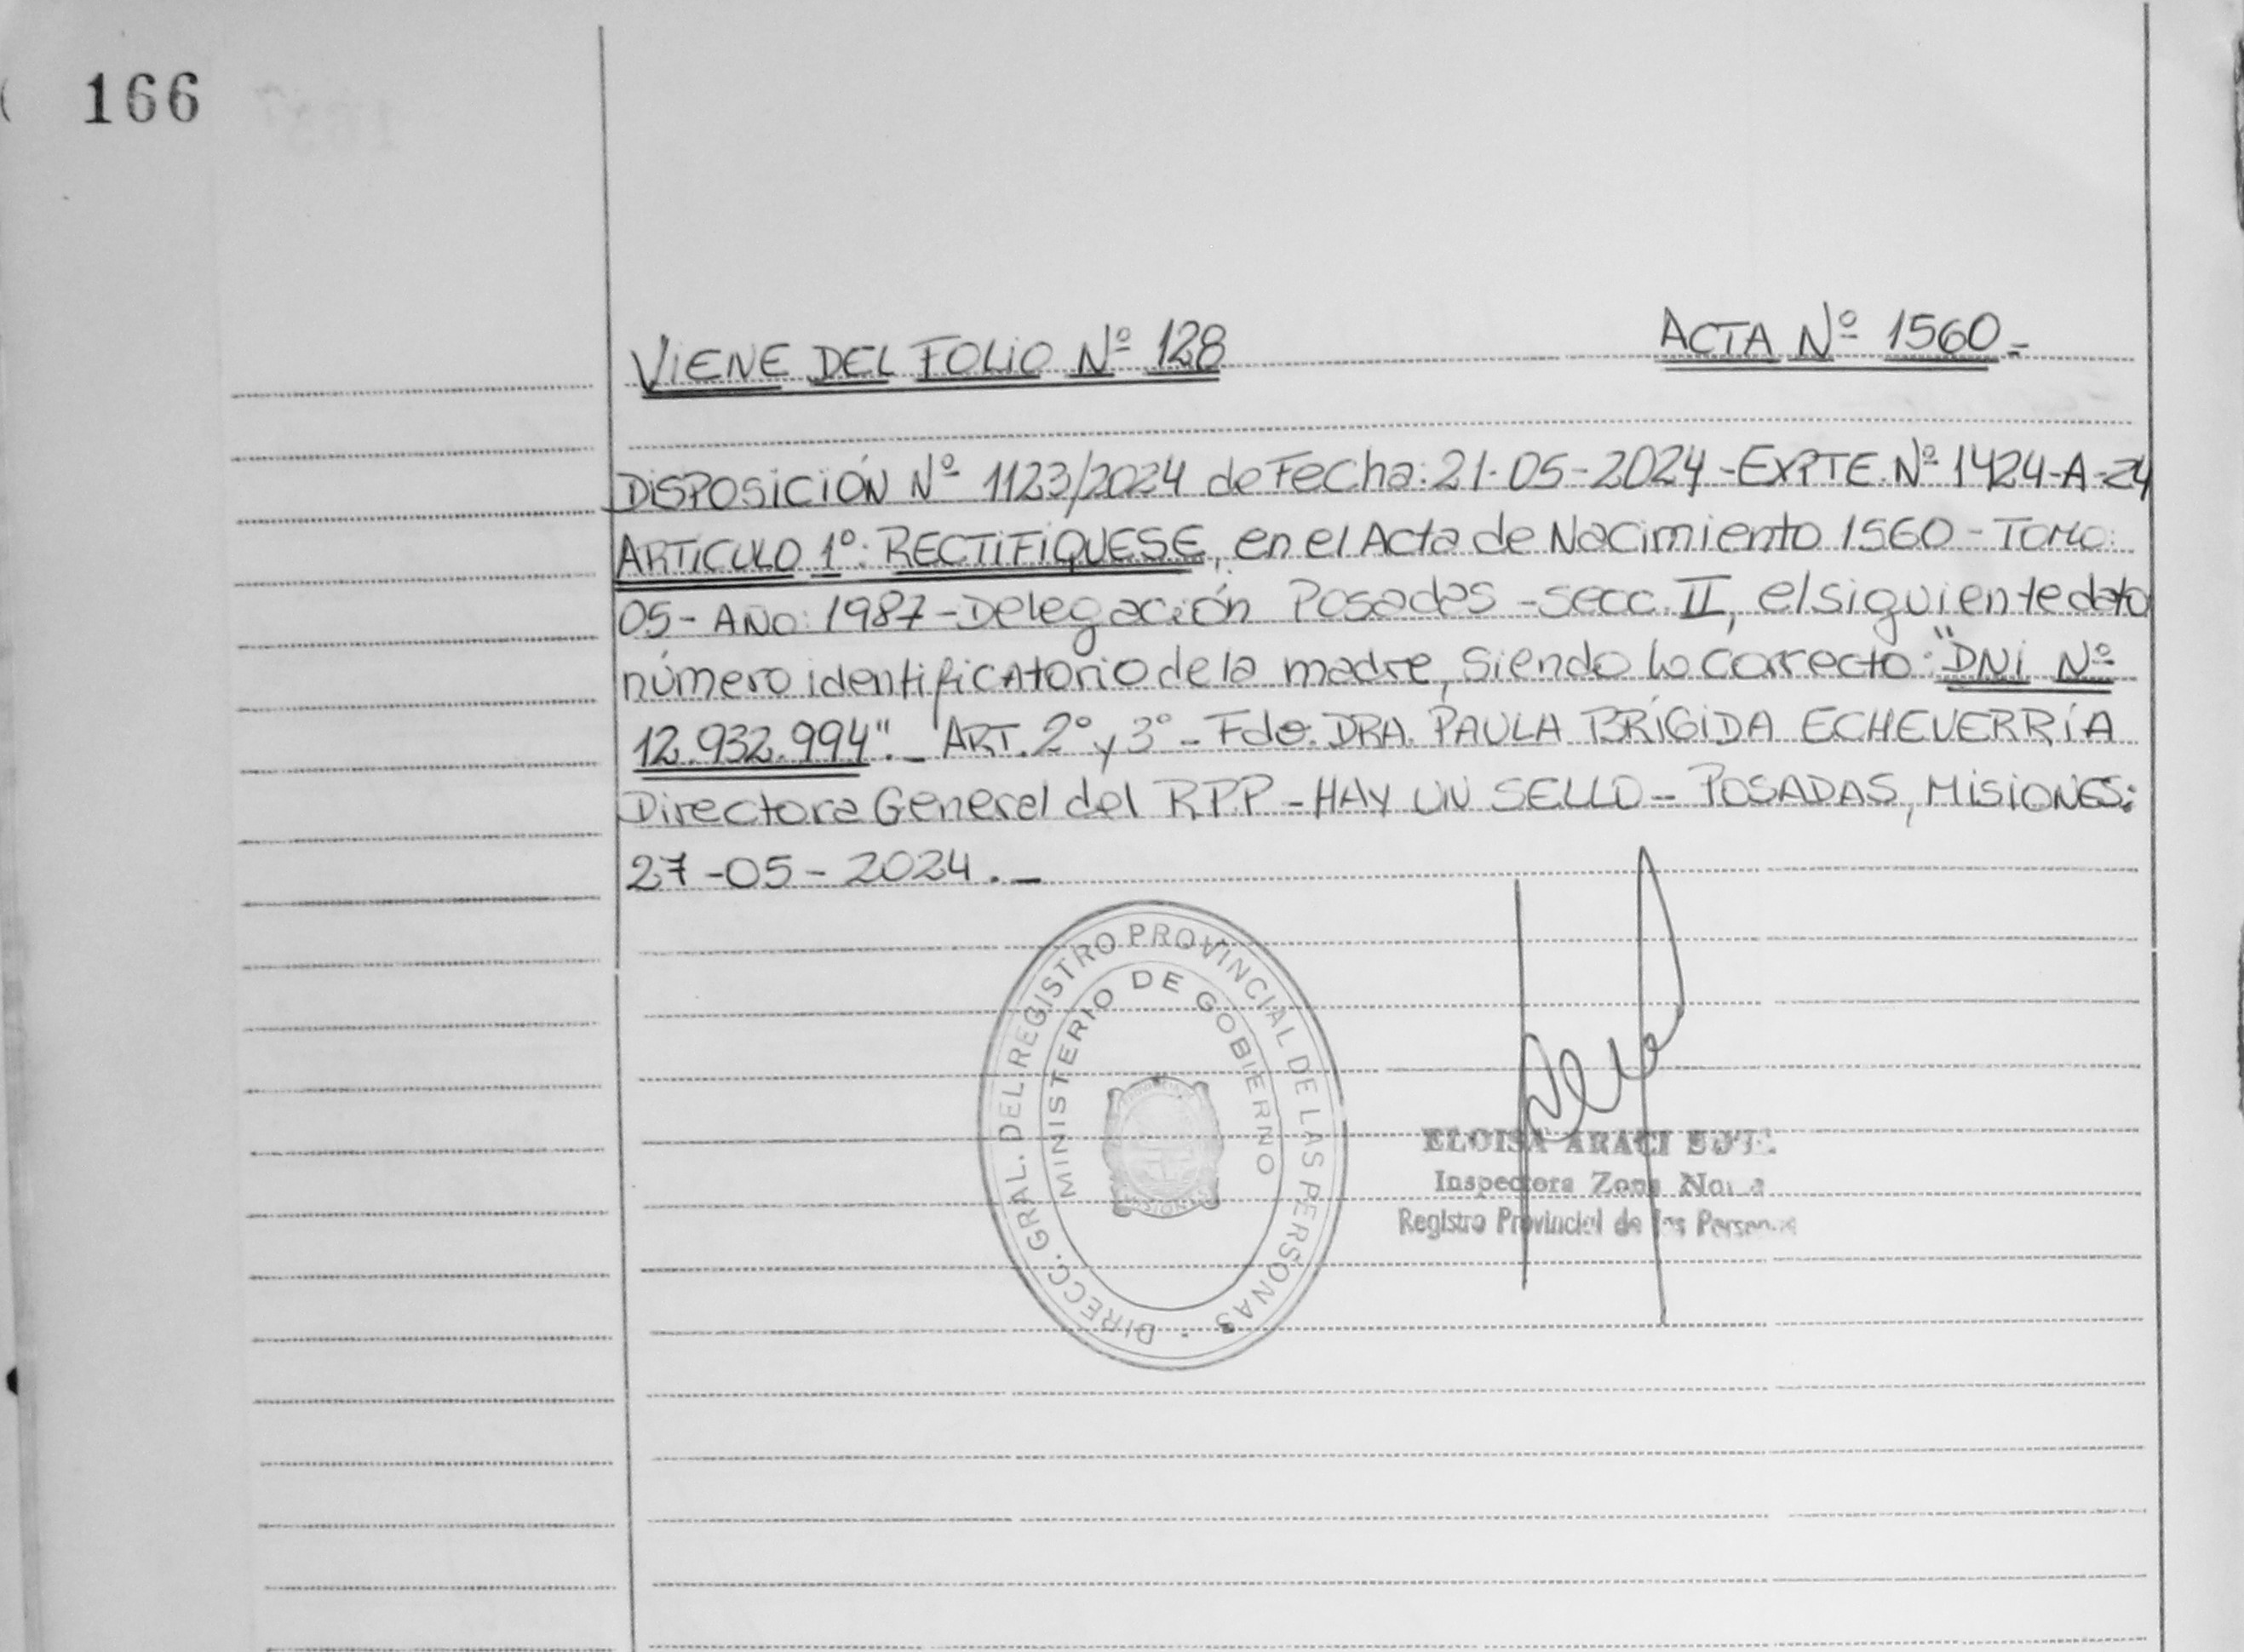 166
VIENE DEL FOLIO Nº 128 ACTA Nº 1560.-
DISPOSICIÓN Nº 1123/2024 de Fecha: 21-05-2024 - EXPTE. Nº 1424-A-24
ARTICULO 1º: RECTIFÍQUESE, en el Acta de Nacimiento 1560 - TOMO:
05 - AÑO: 1987 - Delegación Posadas - secc. II, el siguiente dato
número identificatorio de la madre, siendo lo correcto: "DNI Nº
12.932.994".- ART. 2º y 3º - Fdo. DRA. PAULA BRÍGIDA ECHEVERRÍA
Directora General del RPP - HAY UN SELLO - POSADAS, MISIONES:
27-05-2024.-
DIRECC. GRAL. DEL REGISTRO PROVINCIAL DE LAS PERSONAS
MINISTERIO DE GOBIERNO
ELOISA ARACI
Inspectora Zona
Registro Provincial de las